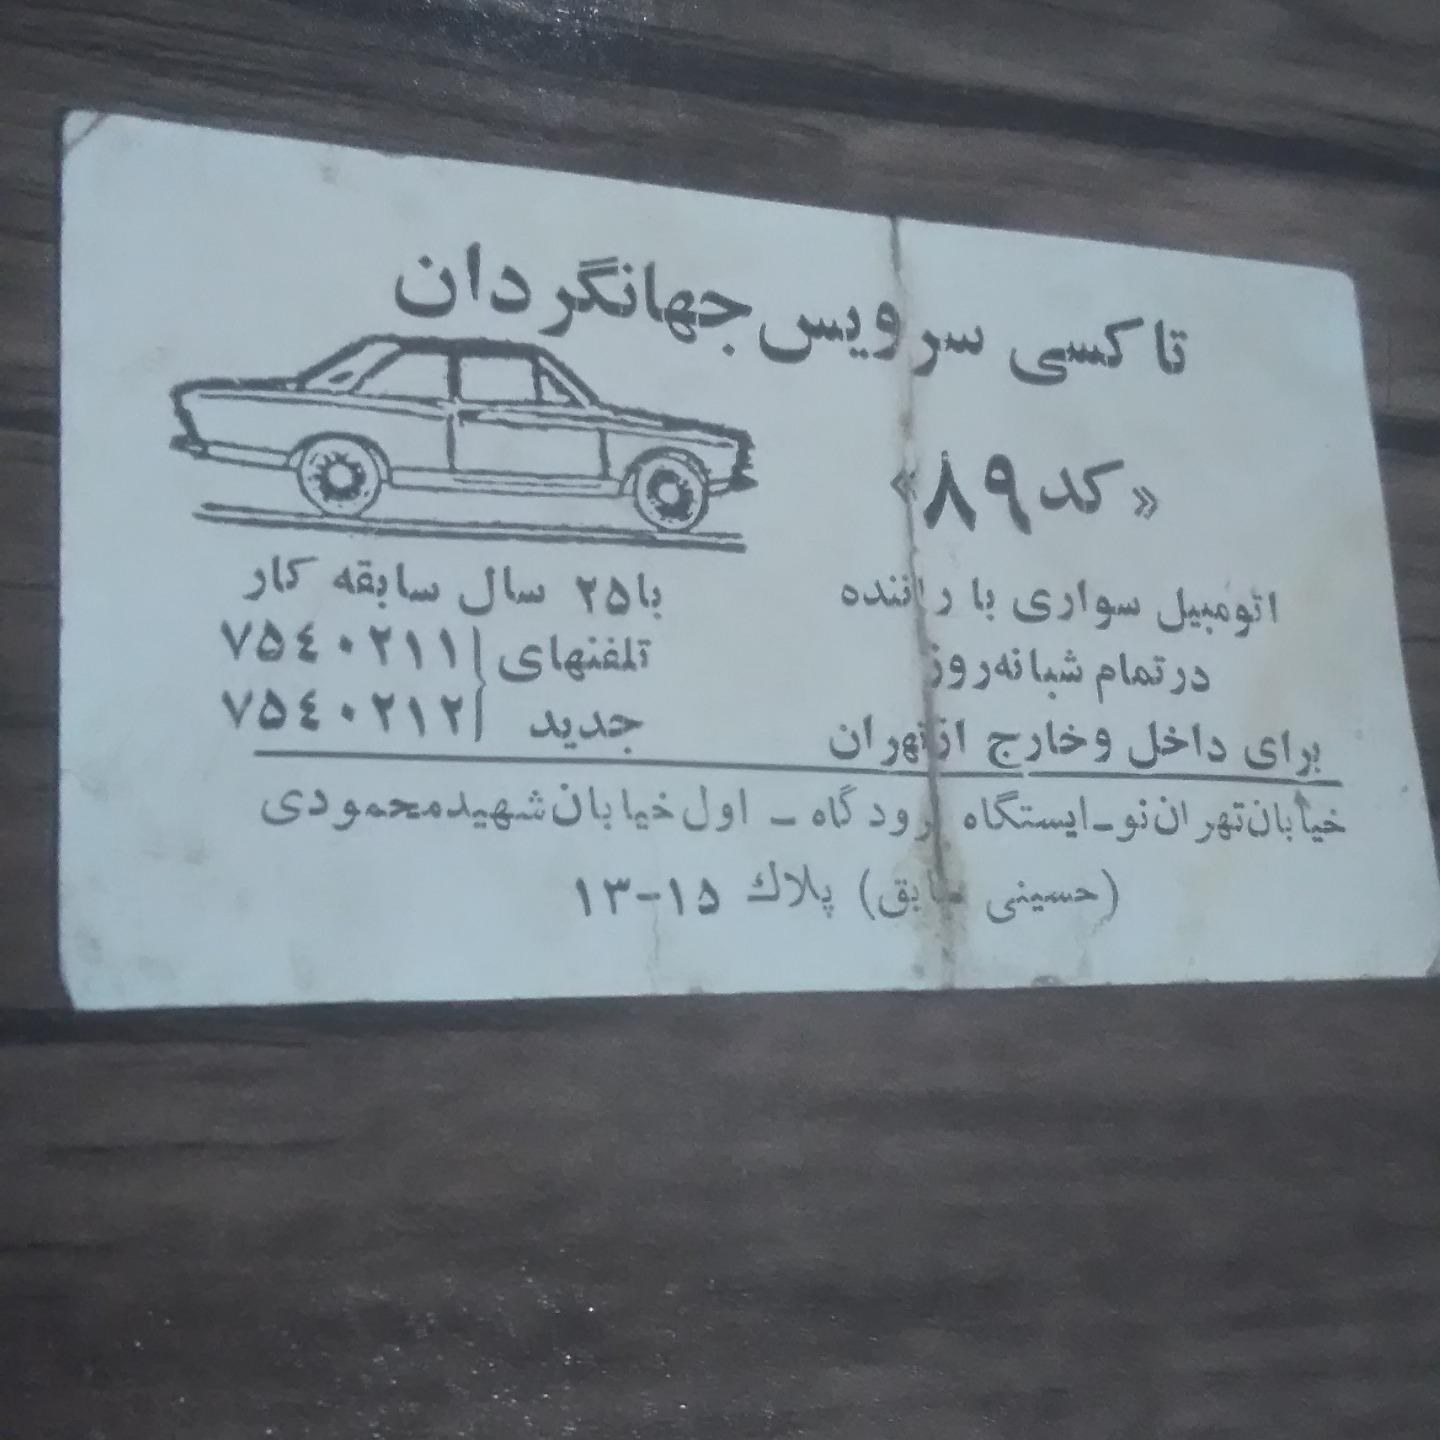 تاکسی سرویس جهانگردان
«کد ۸۹»
اتومبیل سواری با راننده
در تمام شبانه‌روز
برای داخل و خارج از تهران
با ۲۵ سال سابقه کار
تلفنهای ۷۵۴۰۲۱۱
جدید ۷۵۴۰۲۱۲
خیابان تهران نو - ایستگاه - اول خیابان شهید محمودی
(حسینی سابق) پلاک ۱۵-۱۳